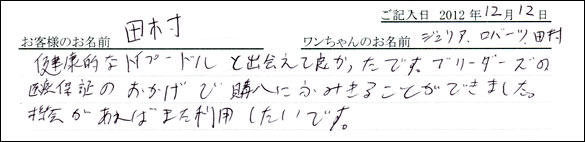 ご記入日 2012年12月12日
お客様のお名前 田村 ワンちゃんのお名前 ジュリア.ロバーツ.田村
健康的なトイプードルと出会えて良かったです。ブリーダーズの
医療保証のおかげで購入にふみきることができました。
機会があればまた利用したいです。